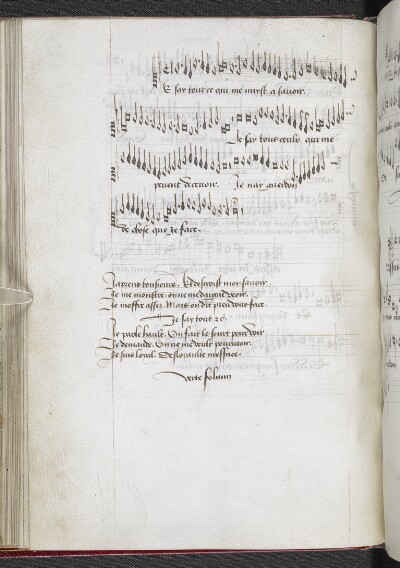 E say tout ce qui me nuyst a savoir.
Je say tous ceulx qui me
peuent decevoir. Je nay guerdon
de chose que Je face.
Japrens tousiours. Et descroist mon savoir.
Je me monstre. on ne me daigne veoir.
Je moffre assez. Mais on dit preu vous face.
Je say tout &c.
Je parle hault. On fait le sourt pour voir
Je demande. On ne me veult pourveoir.
Je suis loyal. Desloyaulte meffface.
verte folium